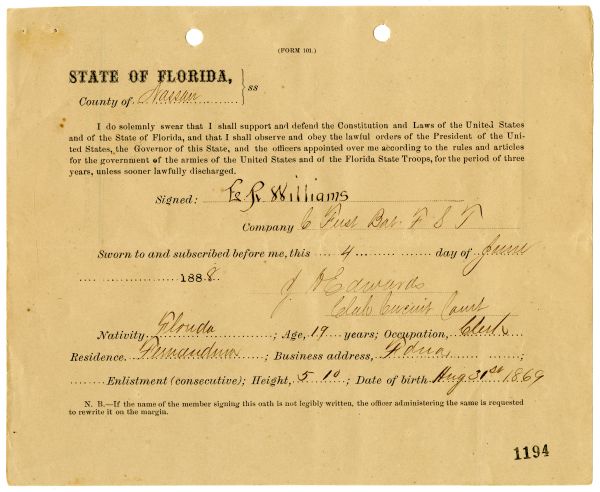 (FORM 101.)
STATE OF FLORIDA,
ss
County of Nassau
I do solemnly swear that I shall support and defend the Constitution and Laws of the United States
and of the State of Florida, and that I shall observe and obey the lawful orders of the President of the Uni-
ted States, the Governor of this State, and the officers appointed over me according to the rules and articles
for the government of the armies of the United States and of the Florida State Troops, for the period of three
years, unless sooner lawfully discharged.
Signed: R Williams
Company C First Bat. F S T
Sworn to and subscribed before me, this 4 day of June
1888 J Edwards
Clerk Circuit Court
Nativity Florida ; Age, 19 years; Occupation, Clerk
Residence. Fernandina ; Business address, Fdina ;
Enlistment (consecutive); Height, 5 10 ; Date of birth Aug 31st 1869
N. B.—If the name of the member signing this oath is not legibly written, the officer administering the same is requested
to rewrite it on the margin.
1194